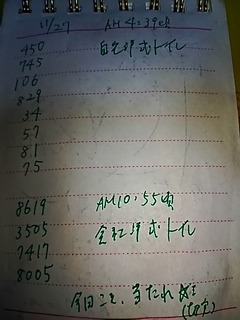 11/27 AM4:39頃
450 自宅 トイレ
745
106
829
34
57
81
75
8619 AM10:55頃
3505 会社 トイレ
7417
8005
今日こそ、当たれ